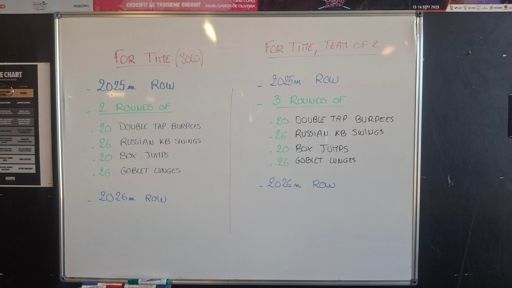 CROSSFIT LE TROISIEME ENERGY
13-14 SEPT 2025
E CHART
FOR TIME (SOLO)
- 2025m ROW
- 2 ROUNDS OF
. 20 DOUBLE TAP BURPEES
. 26 RUSSIAN KB SWINGS
. 20 BOX JUMPS
. 26 GOBLET LUNGES
- 2026m ROW
FOR TIME, TEAM OF 2
- 2025m ROW
- 3 ROUNDS OF
. 20 DOUBLE TAP BURPEES
. 26 RUSSIAN KB SWINGS
. 20 BOX JUMPS
. 26 GOBLET LUNGES
- 2026m ROW